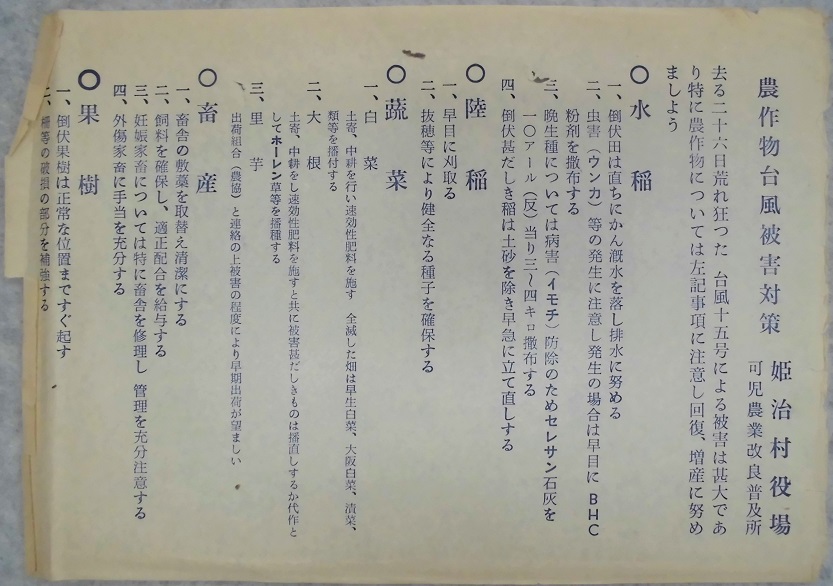 農作物台風被害対策
姫治村役場
可児農業改良普及所
去る二十六日荒れ狂つた 台風十五号による被害は甚大であ
り特に農作物については左記事項に注意し回復、増産に努め
ましよう
○水稲
一、倒伏田は直ちにかん漑水を落し排水に努める
二、虫害(ウンカ)等の発生に注意し発生の場合は早目に BHC
粉剤を撒布する
三、晩生種については病害(イモチ)防除のためセレサン石灰を
一〇アール(反)当り三〜四キロ撒布する
四、倒伏甚だしき稲は土砂を除き早急に立て直しする
○陸稲
一、早目に刈取る
二、抜穂等により健全なる種子を確保する
○蔬菜
一、白菜
土寄、中耕を行い速効性肥料を施す 全滅した畑は早生白菜、大阪白菜、漬菜、
類等を播付する
二、大根
土寄、中耕をし速効性肥料を施すと共に被害甚だしきものは播直しするか代作と
してホーレン草等を播種する
三、里芋
出荷組合(農協)と連絡の上被害の程度により早期出荷が望ましい
○畜産
一、畜舎の敷藁を取替え清潔にする
二、飼料を確保し、適正配合を給与する
三、妊娠家畜については特に畜舎を修理し 管理を充分注意する
四、外傷家畜に手当を充分する
○果樹
一、倒伏果樹は正常な位置まですぐ起す
二、棚等の破損の部分を補強する